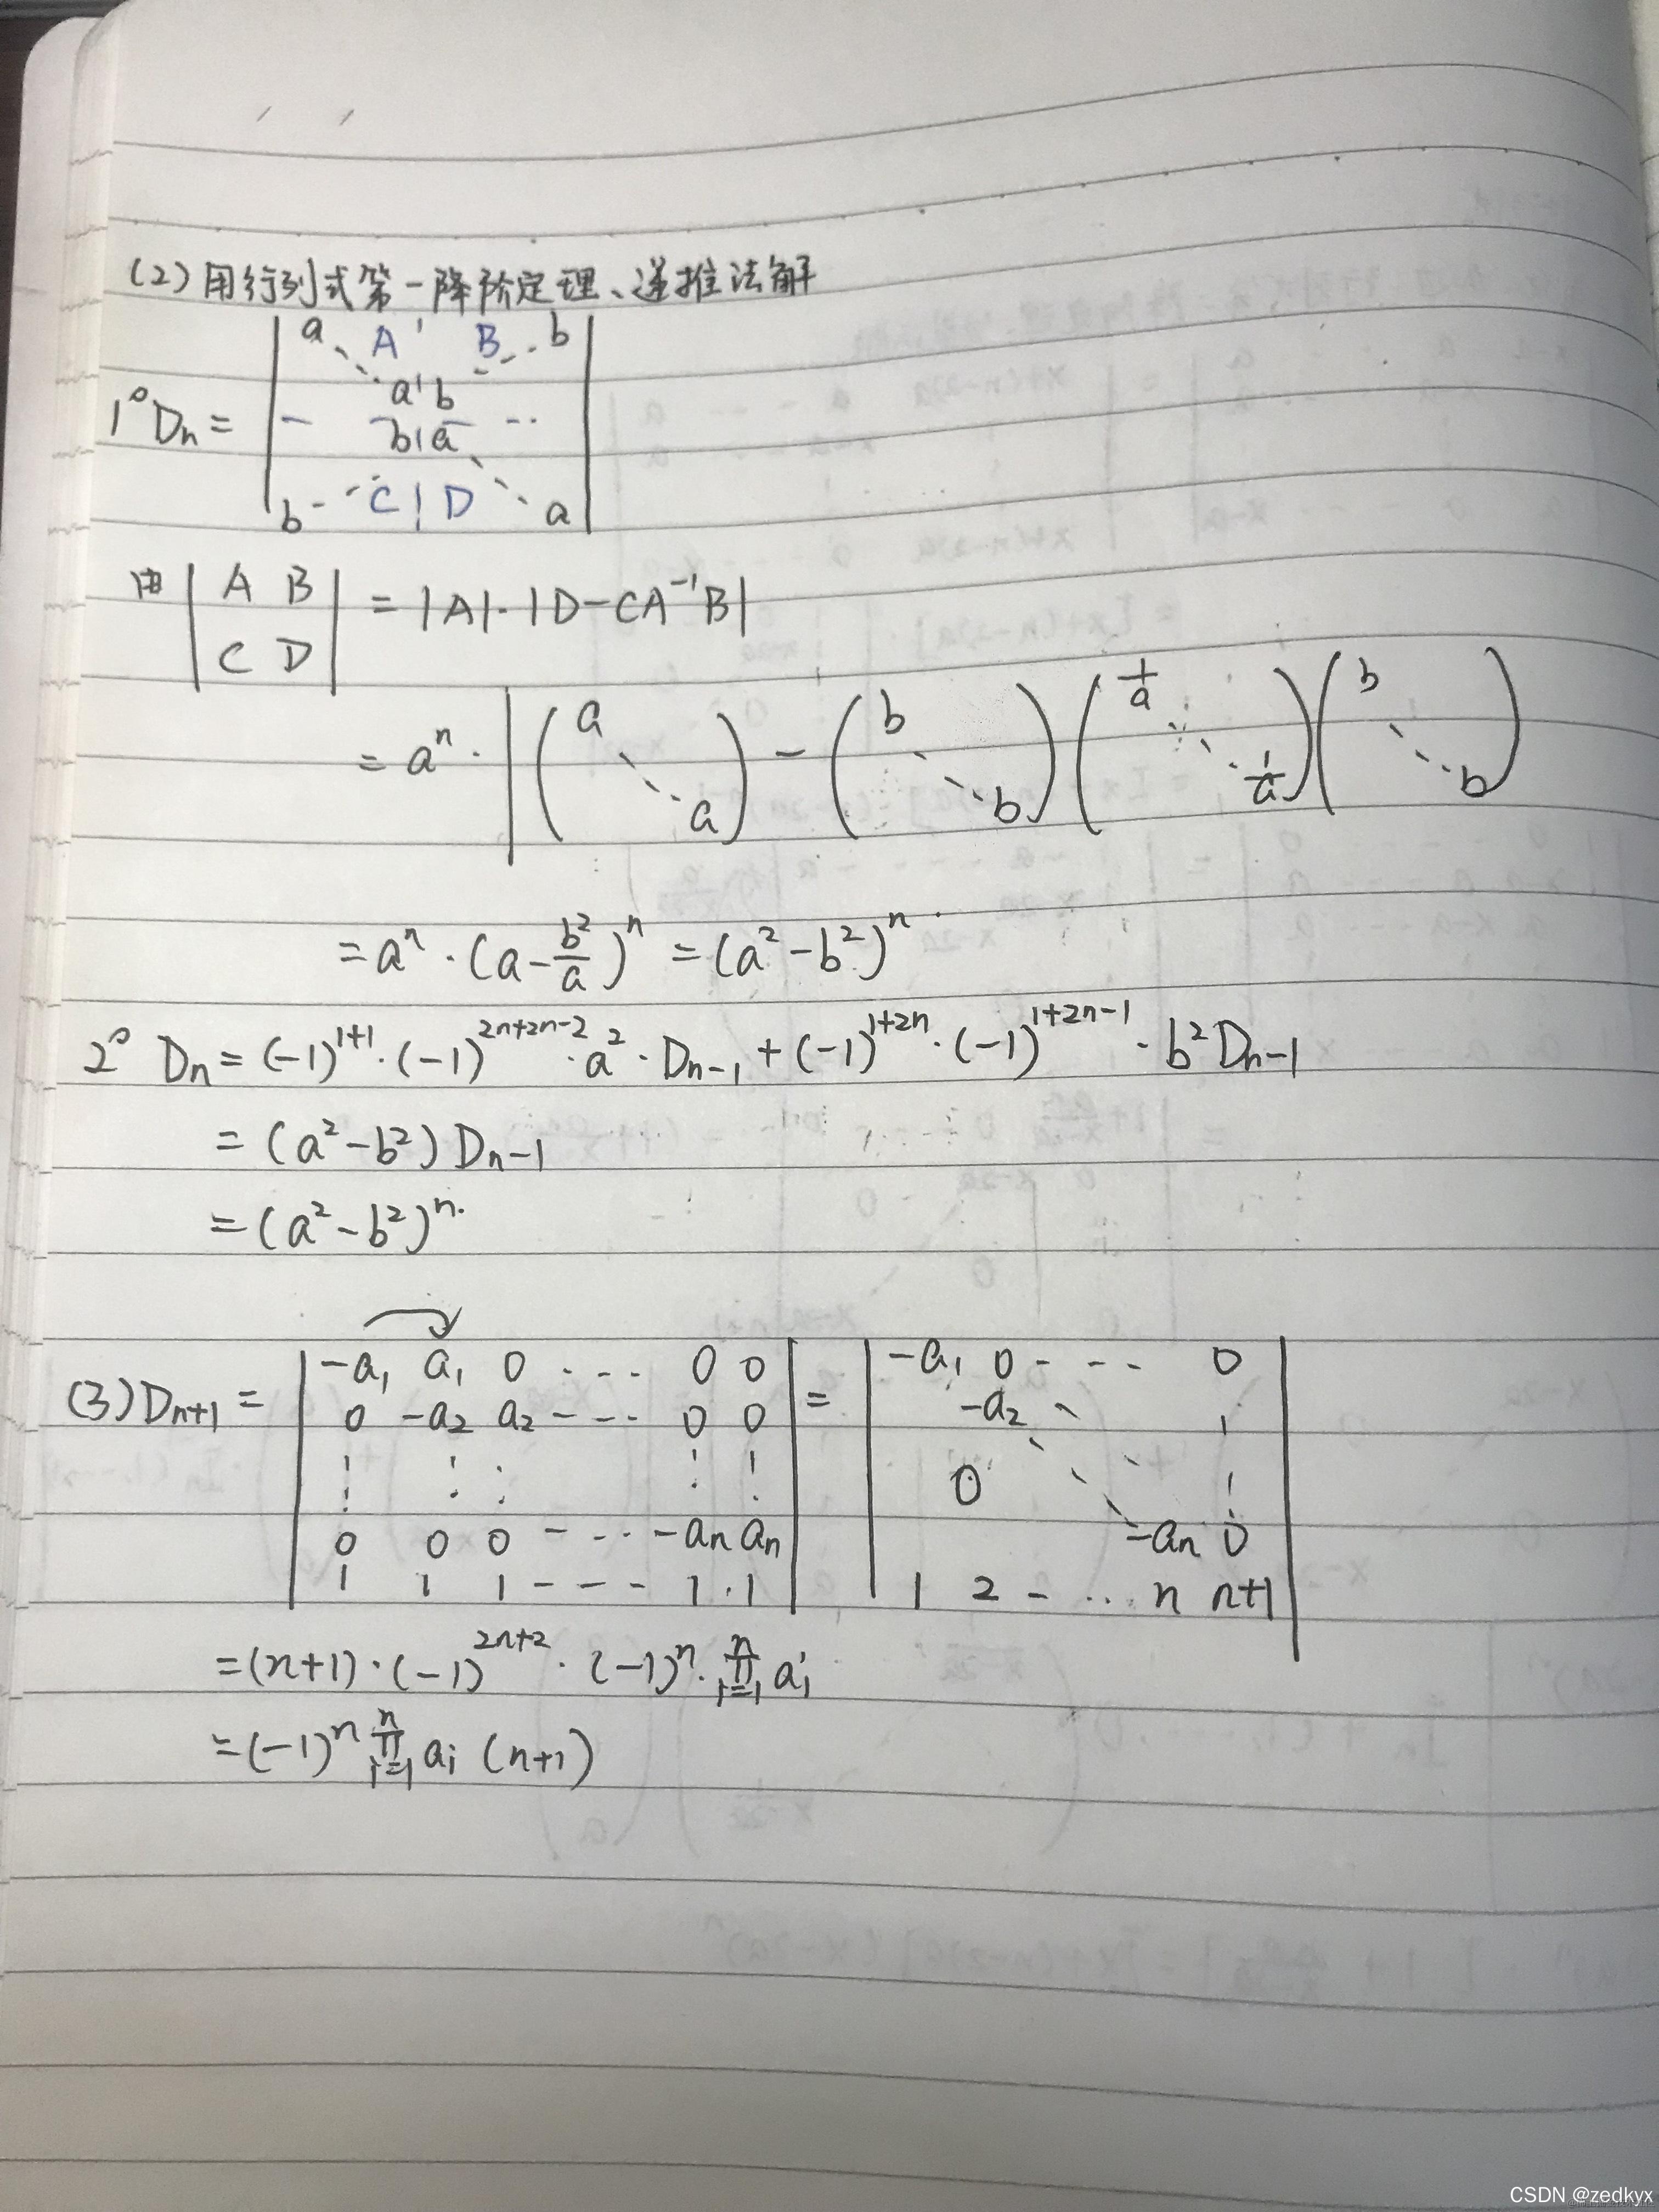 (2) 用行列式第一降阶定理、递推法解
1° Dn = | a A B b
a b
b a
b C D a |
由 | A B
C D | = |A|·|D-CA⁻¹B|
= aⁿ · | ( a ⋱ a ) - ( b ⋱ b ) ( 1/a ⋱ 1/a ) ( b ⋱ b )
= aⁿ · (a - b²/a)ⁿ = (a² - b²)ⁿ
2° Dn = (-1)¹⁺¹ · (-1)²ⁿ⁺²ⁿ⁻² · a² · Dn-1 + (-1)¹⁺²ⁿ · (-1)¹⁺²ⁿ⁻¹ · b² Dn-1
= (a² - b²) Dn-1
= (a² - b²)ⁿ.
(3) Dn+1 = | -a₁ a₁ 0 ... 0 0 | = | -a₁ 0 - ... 0 |
| 0 -a₂ a₂ --- 0 0 | | -a₂ ⋱ |
| ⋮ ⋮ ⋮ ⋮ ⋮ | | 0 ⋱ ⋮ |
| 0 0 0 - ... -an an | | -an 0 |
| 1 1 1 --- 1 1 | | 1 2 - ... n n+1 |
= (n+1) · (-1)²ⁿ⁺² · (-1)ⁿ · ∏ⁿᵢ₌₁ aᵢ
= (-1)ⁿ ∏ⁿᵢ₌₁ aᵢ (n+1)
CSDN @zedkyx